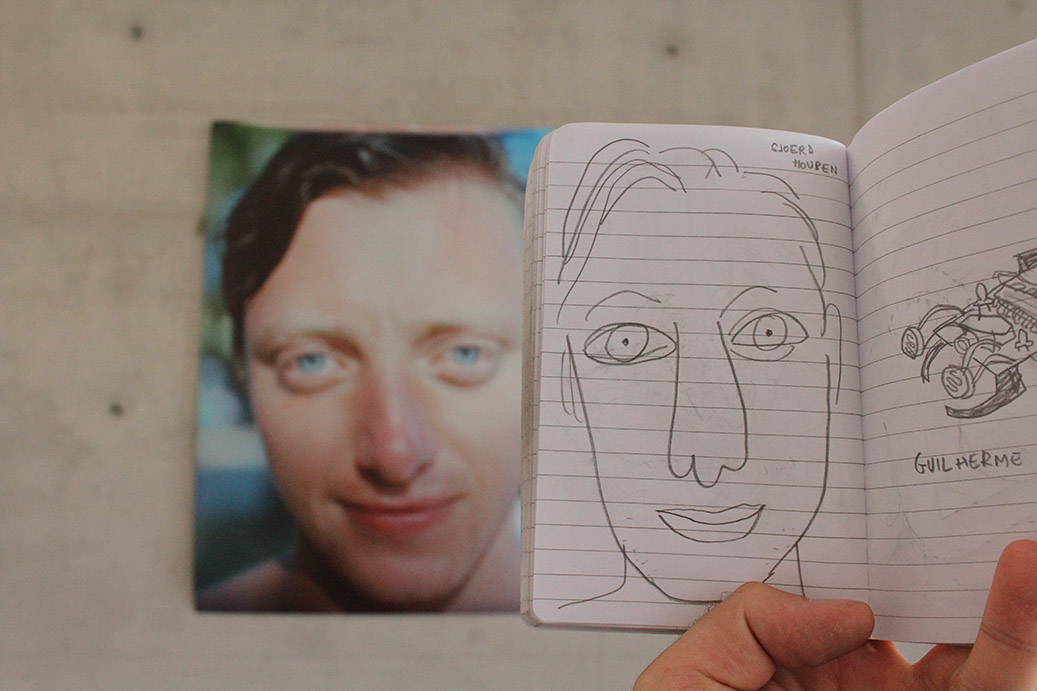 GJOERD
HOUBEN
GUILHERME